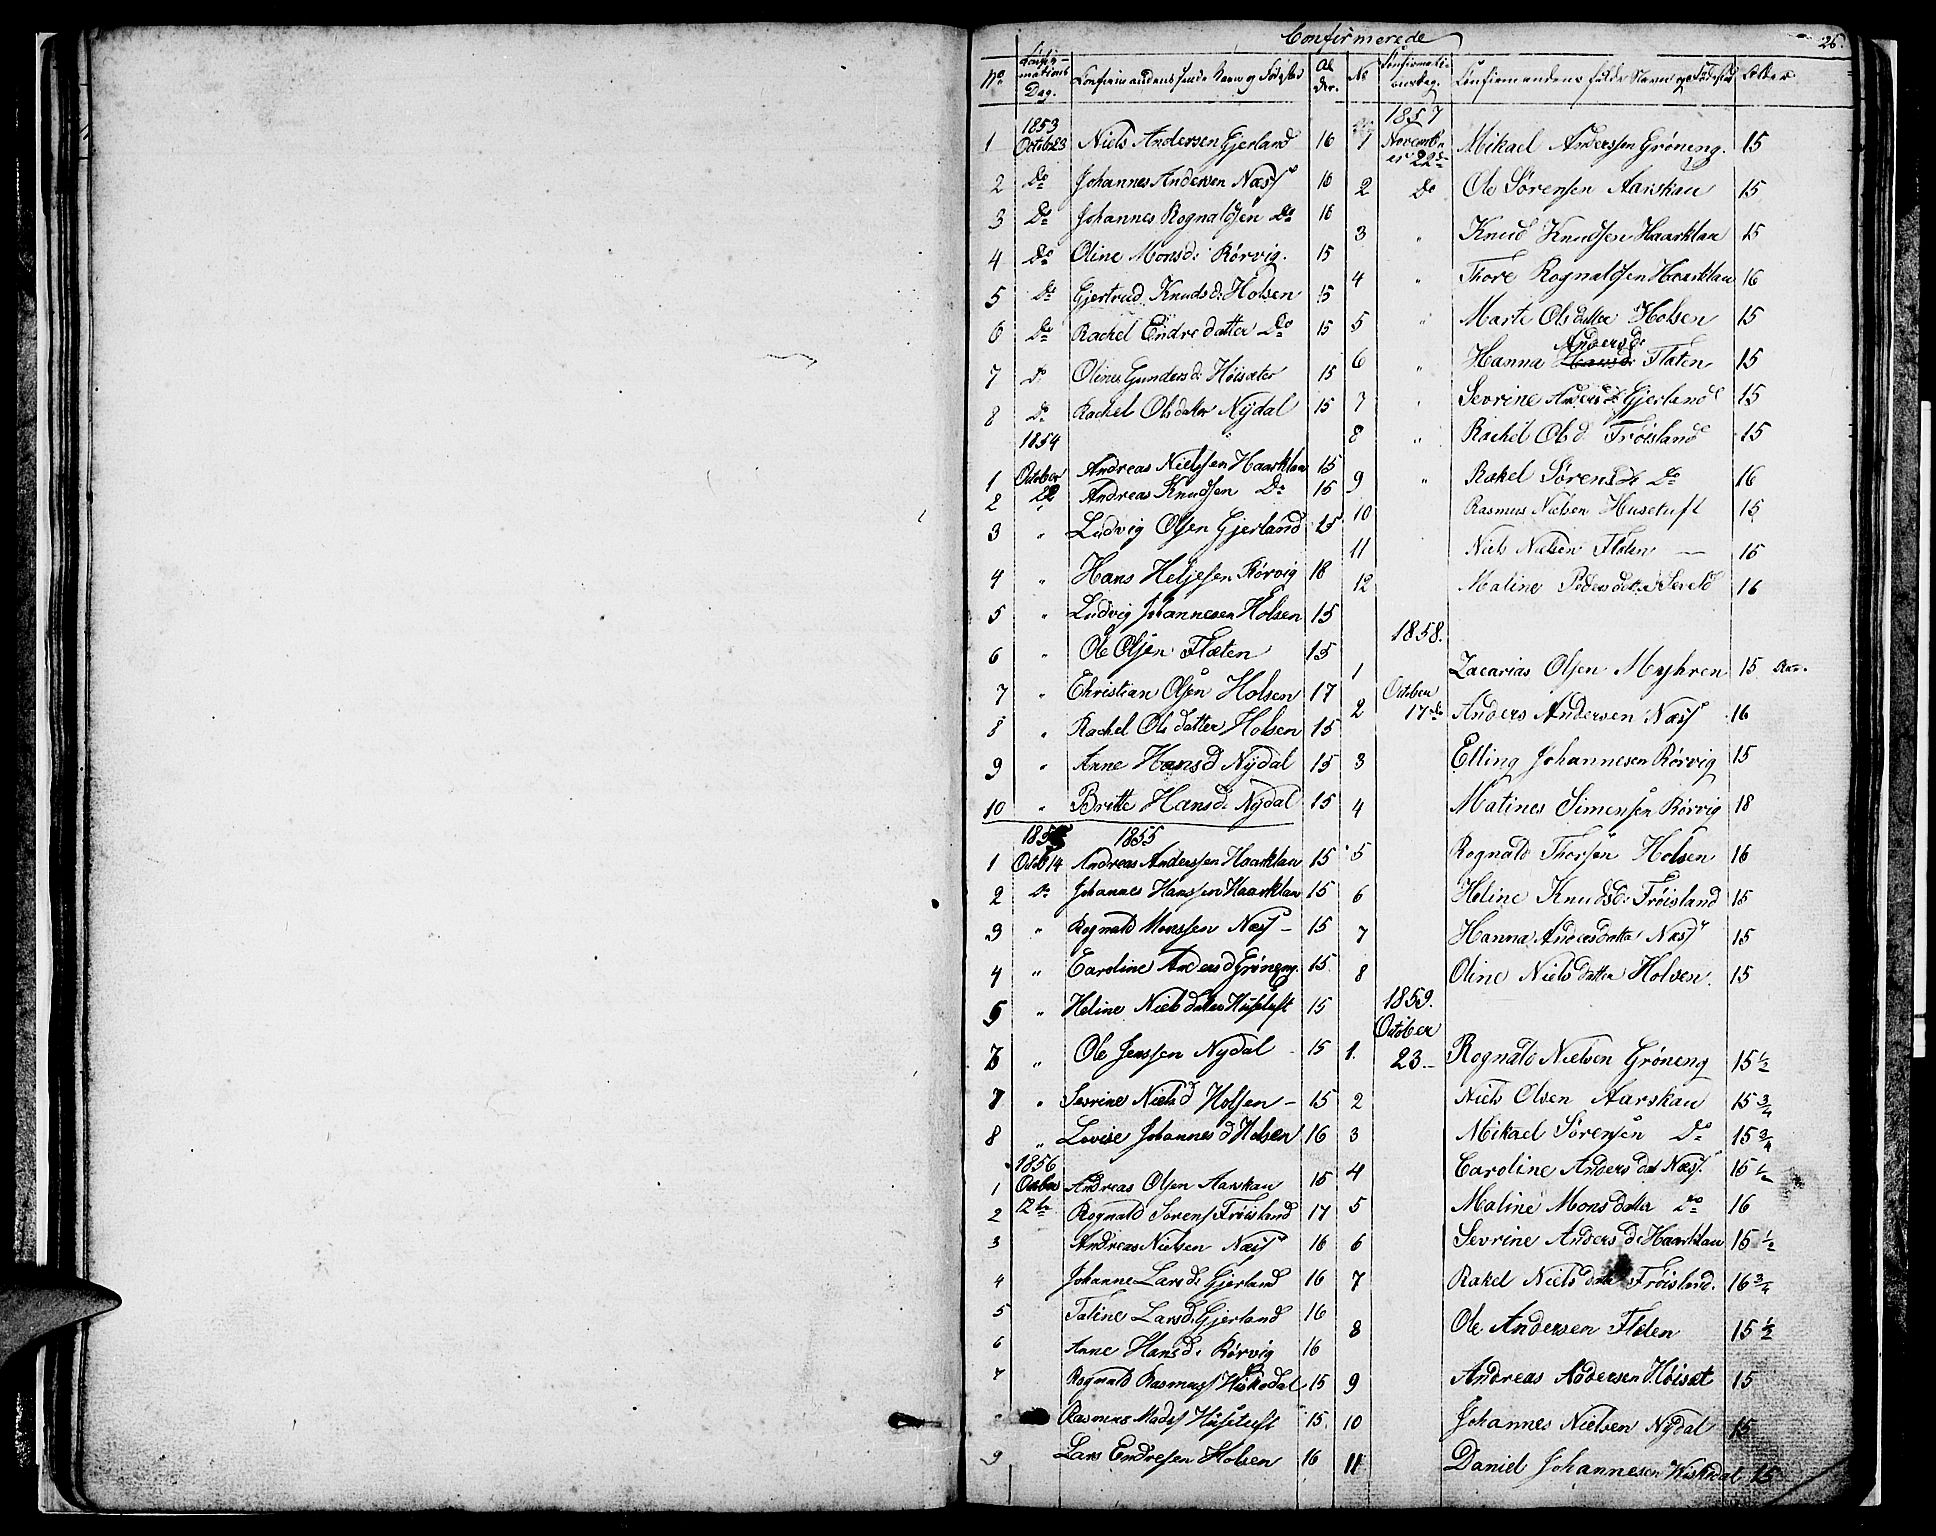 Confirmerede
26.
No Confirmations Dag. Confirmandens fulde Navn og Fødested Alder. No Confirmationsdag. Confirmandens fulde Navn og Fødested Alder
1853
1 Octob 23 Niels Andersen Gjerland 16
2 Do Johannes Andersen Næss 16
3 Do Johannes Rognaldsen Do 16
4 Do Oline Monsd: Rørvig. 15
5 Do Gjertrud Knudsd: Holsen 15
6 Do Rachel Endredatter Do 15
7 Do Oline Gundersd: Høisæter 15
8 Do Rachel Olsdatter Nydal 15
1854
1 October Andreas Nielssen Haarklau 15
2 22 Andreas Knudsen Do 15
3 " Ludvig Olsen Gjerland 15
4 " Hans Heljesen Rørvig 18
5 " Ludvig Johannesen Holsen 15
6 " Ole Olsen Flaten 15
7 " Christian Olsen Holsen 17
8 " Rachel Olsdatter Holsen 15
9 " Anne Hansd Nydal 15
10 " Britte Hansd: Nydal 15
1855 1855
1 Octb 14 Andreas Anderssen Haarklau 15
2 Do Johannes Hanssen Haarklau 15
3 " Rognald Monssen Næss - 15
4 " Caroline Andersd Grøneng. 15
5 " Heline Nielsdatter Husetuft 15
6 " Ole Jenssen Nydal - 15
7 " Sevrine Nielsd Holsen - 15
8 " Lovise Johannesd Holsen 16
1856
1 October Andreas Olsen Aarskau 15
2 12te Rognald Sørens Frøisland 17
3 Andreas Nielsen Næss 16
4 Johanne Larsd: Gjerland 16
5 Taline Larsd. Gjerland 16
6 Anne Hansd: Rørvig 16
7 Rognald Rasmuss Viskedal 15
Rasmus Mads Husetuft 15
9 Lars Endresen Holsen 16
1857
1 November 22de Mikael Anderssen Grøneng. 15
2 Do Ole Sørensen Aarskau 15
3 " Knud Knudsen Haarklau 15
4 " Thore Rognaldsen Haarklau 16
5 " Marte Olsdatter Holsen 15
Andersd:
6 " Hanna Hansd: Flaten 15
7 " Sevrine Andersd Gjerland 15
8 " Rachel Olsd: Frøisland 15
9 " Rakel Sørensd: Do 16
10 Rasmus Nielsen Husetuft 15
11 Niels Nielsen Flaten — 15
12 Maline Pedersdatter 16
1858.
1 Zacarias Olsen Myhren 15 Aar.
2 October 17de Anders Andersen Næss 16
3 Elling Johannesen Rørvig 15
4 Matines Simensen Rørvig 18
5 Rognald Thorsen Holsen 16
6 Heline Knudsd: Frøisland 15
7 Hanna Andersdatter Næss 15
8 Oline Nielsdatter Holsen. 15
1859.
October
1. 23 – Rognald Nielsen Grøneng 15 1/2
2 Niels Olsen Aarskau 15 3/4
3 Mikael Sørensen Do 15 3/4
4 Caroline Andersdat Næss 15 1/2
5 Maline Monsdatter Do 16
6 Sevrine Andersd: Haarklau 15 1/2
7 Rakel Nielsdatter Frøisland. 16 3/4
8 Ole Andersen Flaten 15 1/2
9 Andreas Andersen Høisæt 15
10 Johannes Nielsen Nydal 15
11 Daniel Johannesen Viskedal 15